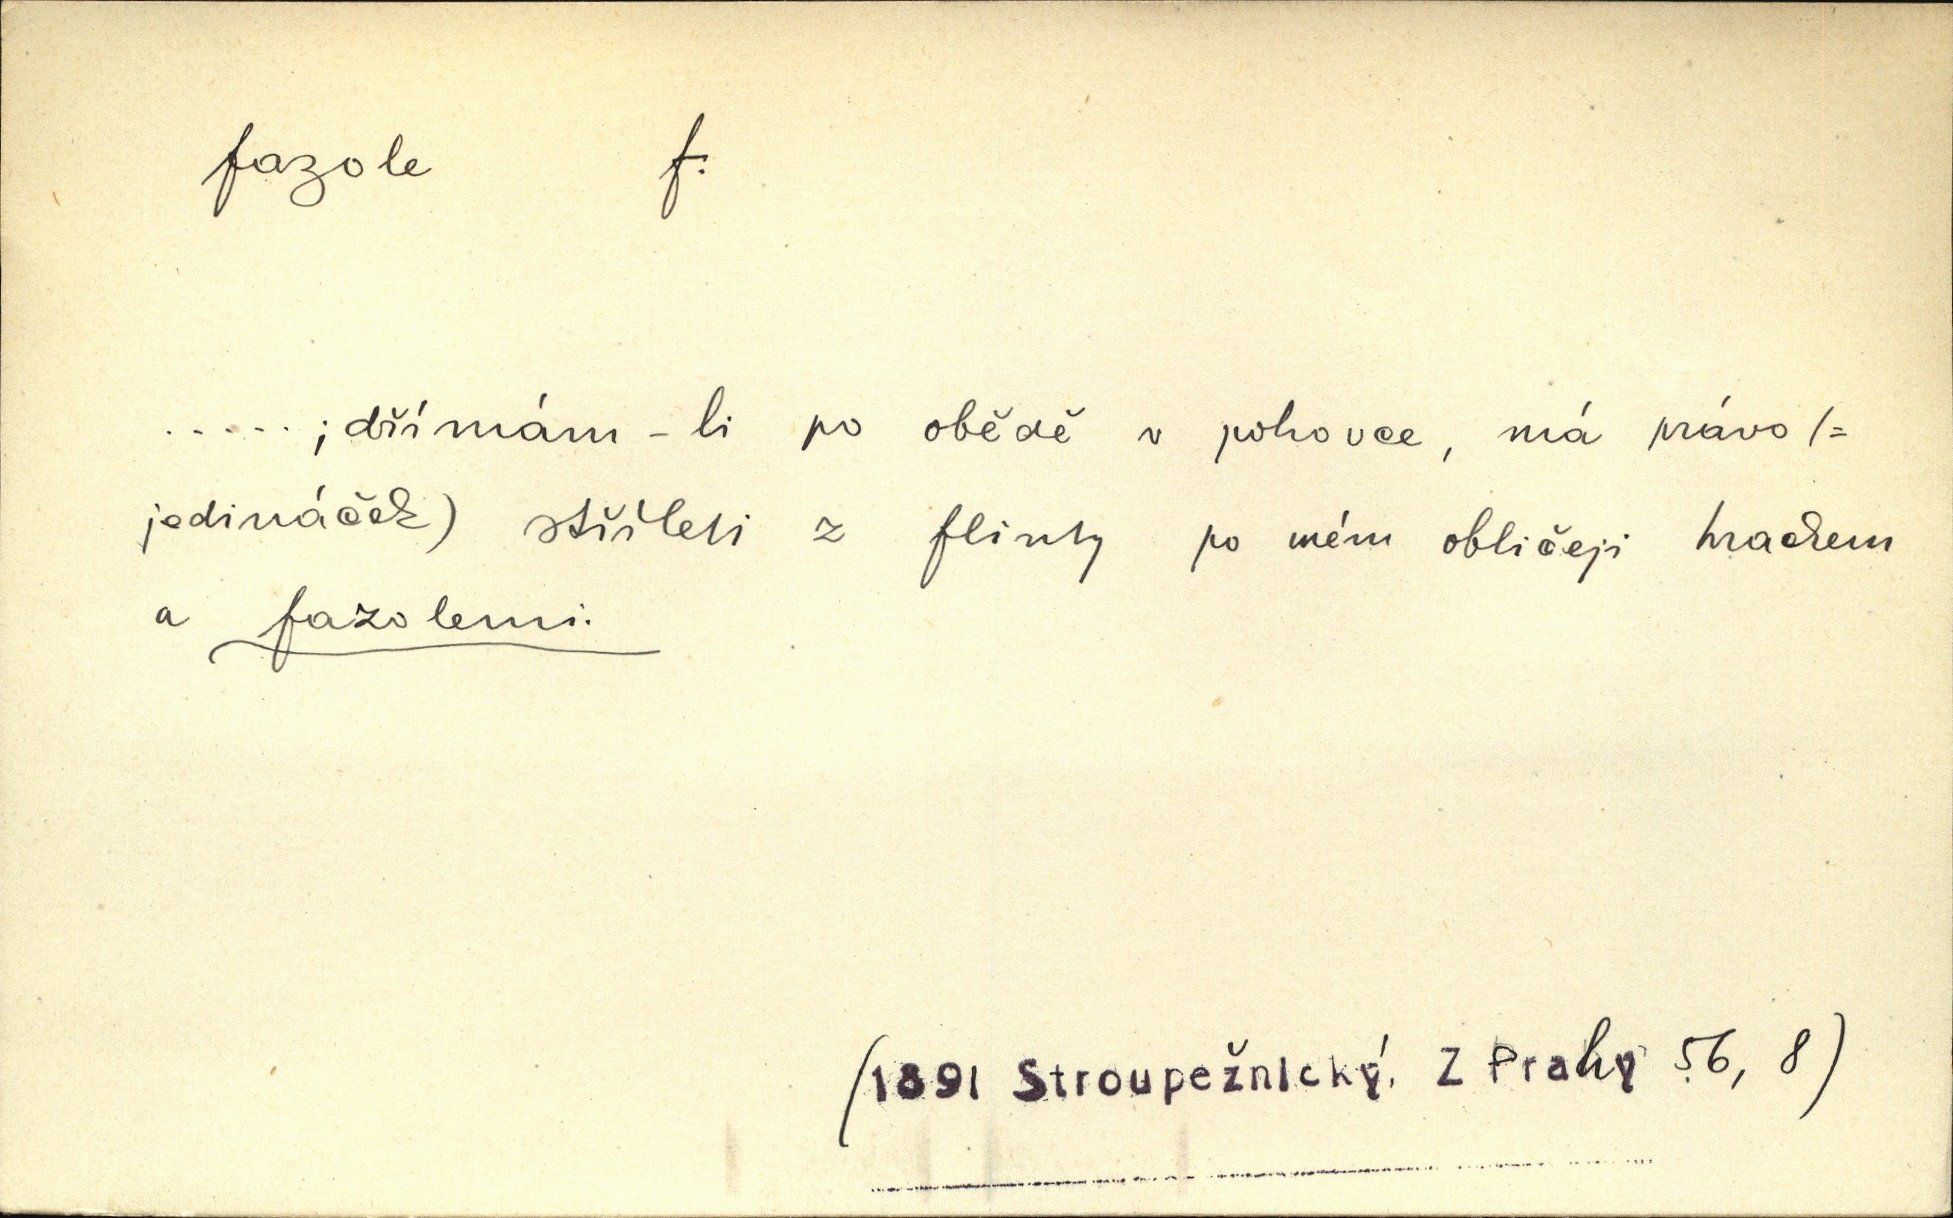 fazole f.
.....; dřímám-li po obědě v pohovce, má právo (=
jedináček) stříleti z flinty po mém obličeji hrachem
a fazolemi.
(1891 Stroupežnický. Z Prahy 56, 8)